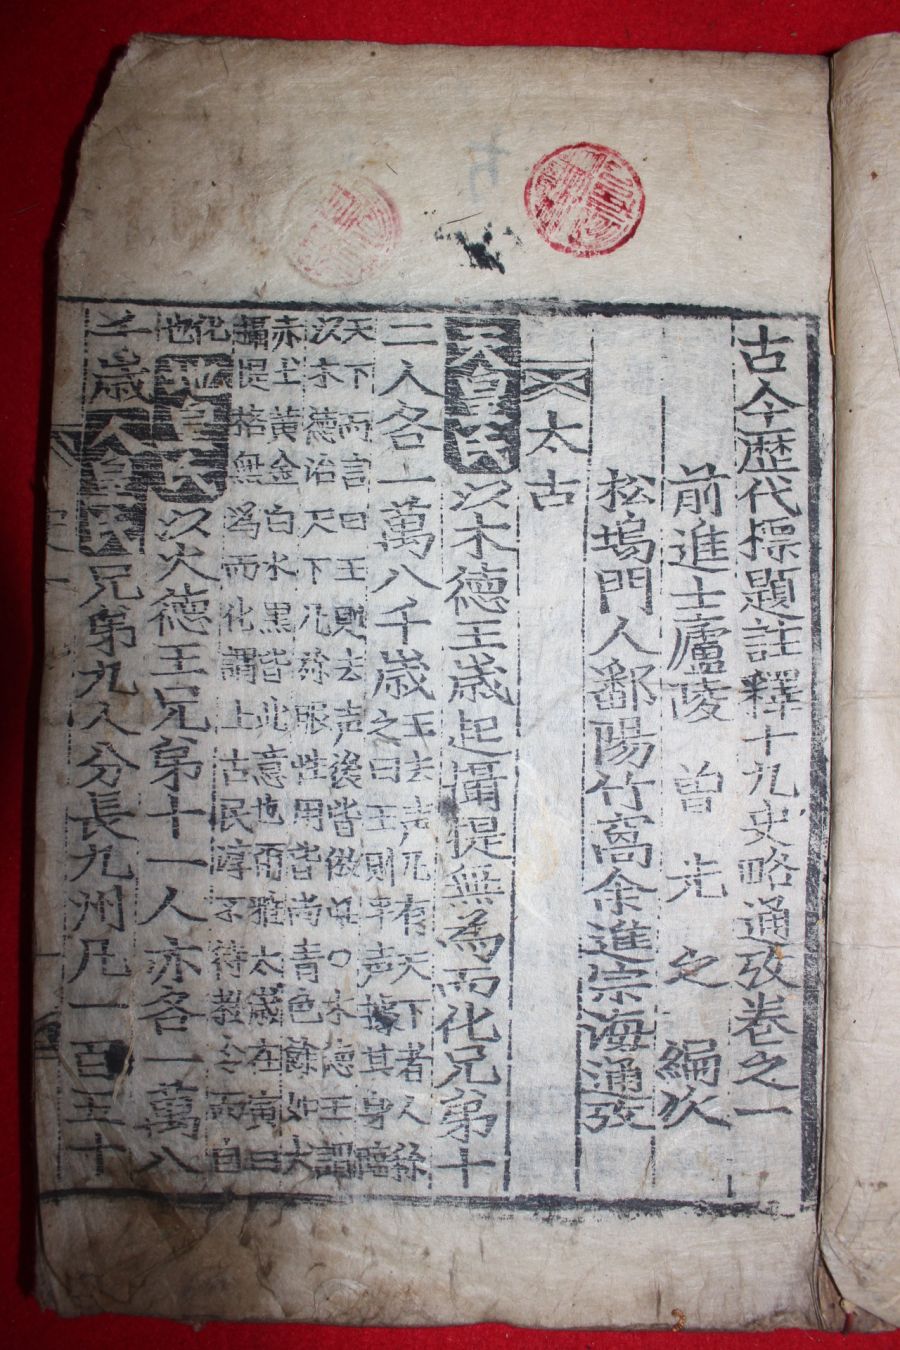 古今歴代標題註釋十九史略通攷卷之一
前進士廬陵 曾先之 編次
松塢門人鄱陽竹窩余進宗海通攷
太古
天皇氏以木德王歲起攝提無為而化兄弟十
二人各一萬八千歲王去声凡有天下者人稱
之曰王則平声據其身臨
天下而言曰王則去声後皆倣此○木德王謂
以木德治天下凡祭服牲用皆尚青色餘如火
赤土黃金白水黑皆此意也爾雅太歲在寅曰
攝提格無爲而化謂上古民淳不待教令而自
化也地皇氏以火德王兄弟十一人亦各一萬八
千歲人皇氏兄弟九人分長九州凡一百五十